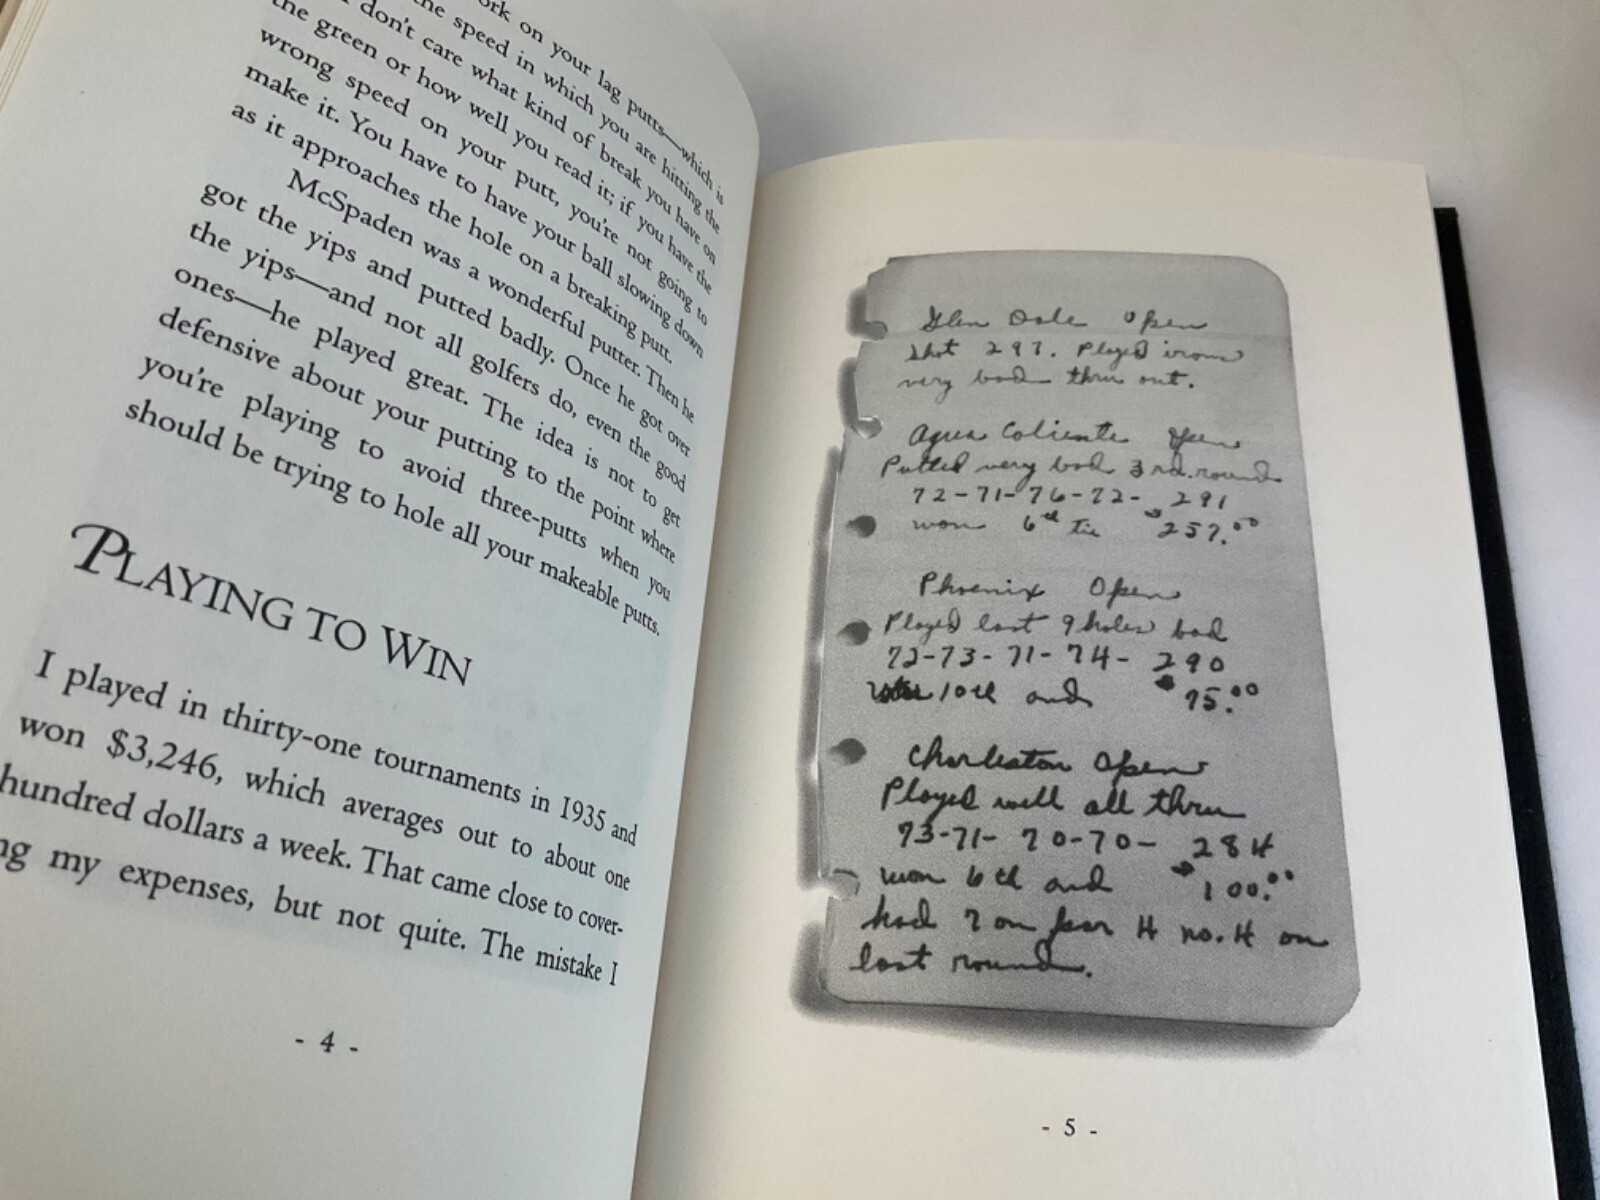 ork on your lag putts—which is
the speed in which you are hitting the
don't care what kind of break you have on
the green or how well you read it; if you have the
wrong speed on your putt, you're not going to
make it. You have to have your ball slowing down
as it approaches the hole on a breaking putt.
McSpaden was a wonderful putter. Then he
got the yips and putted badly. Once he got over
the yips—and not all golfers do, even the good
ones—he played great. The idea is not to get
defensive about your putting to the point where
you're playing to avoid three-putts when you
should be trying to hole all your makeable putts.
PLAYING TO WIN
I played in thirty-one tournaments in 1935 and
won $3,246, which averages out to about one
hundred dollars a week. That came close to cover-
ng my expenses, but not quite. The mistake I
- 4 -
Glen Dale Open
Shot 297. Played irons
very bad thru out.
Agua Caliente Open
Putted very bad 3rd. round
72-71-76-72- 291
won 6th tie $257.00
Phoenix Open
Played last 9 holes bad
72-73-71-74- 290
10th and $75.00
Charleston Open
Played well all thru
73-71-70-70- 284
won 6th and $100.00
had 7 on par 4 no. 4 on
last round.
- 5 -